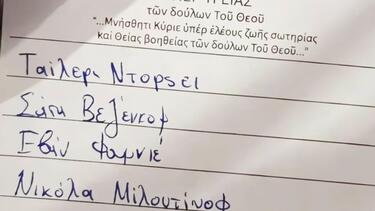 ΥΓΕΙΑΣ
τῶν δούλων Τοῦ Θεοῦ
"...Μνήσθητι Κύριε ὑπέρ ἐλέους ζωῆς σωτηρίας
καί Θείας βοηθείας τῶν δούλων Τοῦ Θεοῦ..."
Ταϊλερ Ντορσεϊ
Σάσα Βεζένκοφ
Εβάν Φουρνιέ
Νικόλα Μιλουτίνοφ